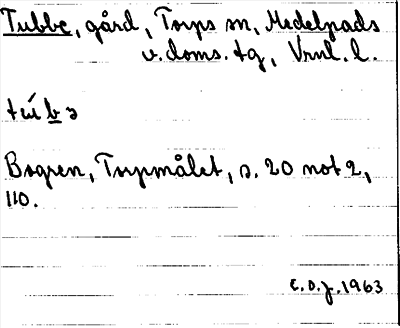 Tubbe, gård, Torps sn, Medelpads
v. doms. tg, Vrnl. l.
tú b ə
Bogren, Torpmålet, s. 20 not 2,
110.
C.O.J. 1963